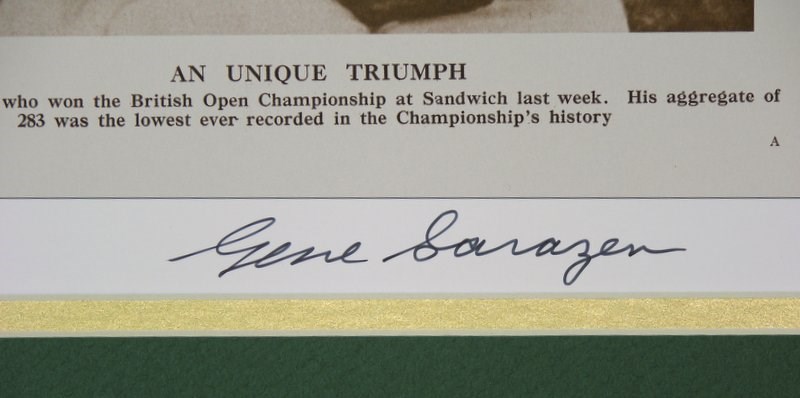 AN UNIQUE TRIUMPH
who won the British Open Championship at Sandwich last week. His aggregate of
283 was the lowest ever recorded in the Championship's history
A
Gene Sarazen